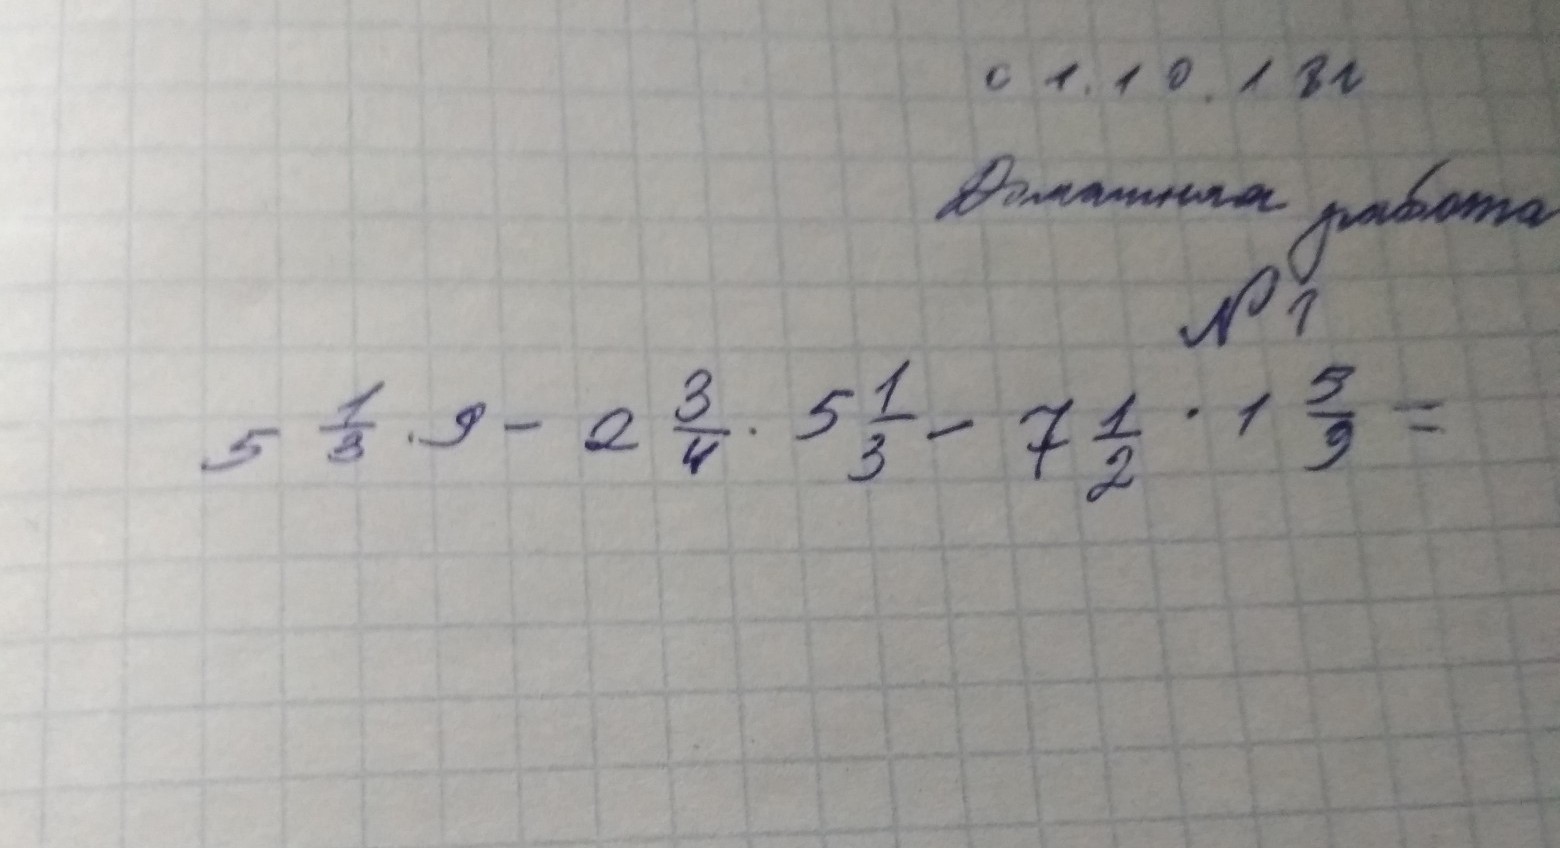 01.10.18г
Домашняя работа
№1
5 1/3 · 9 - 2 3/4 · 5 1/3 - 7 1/2 · 1 5/9 =